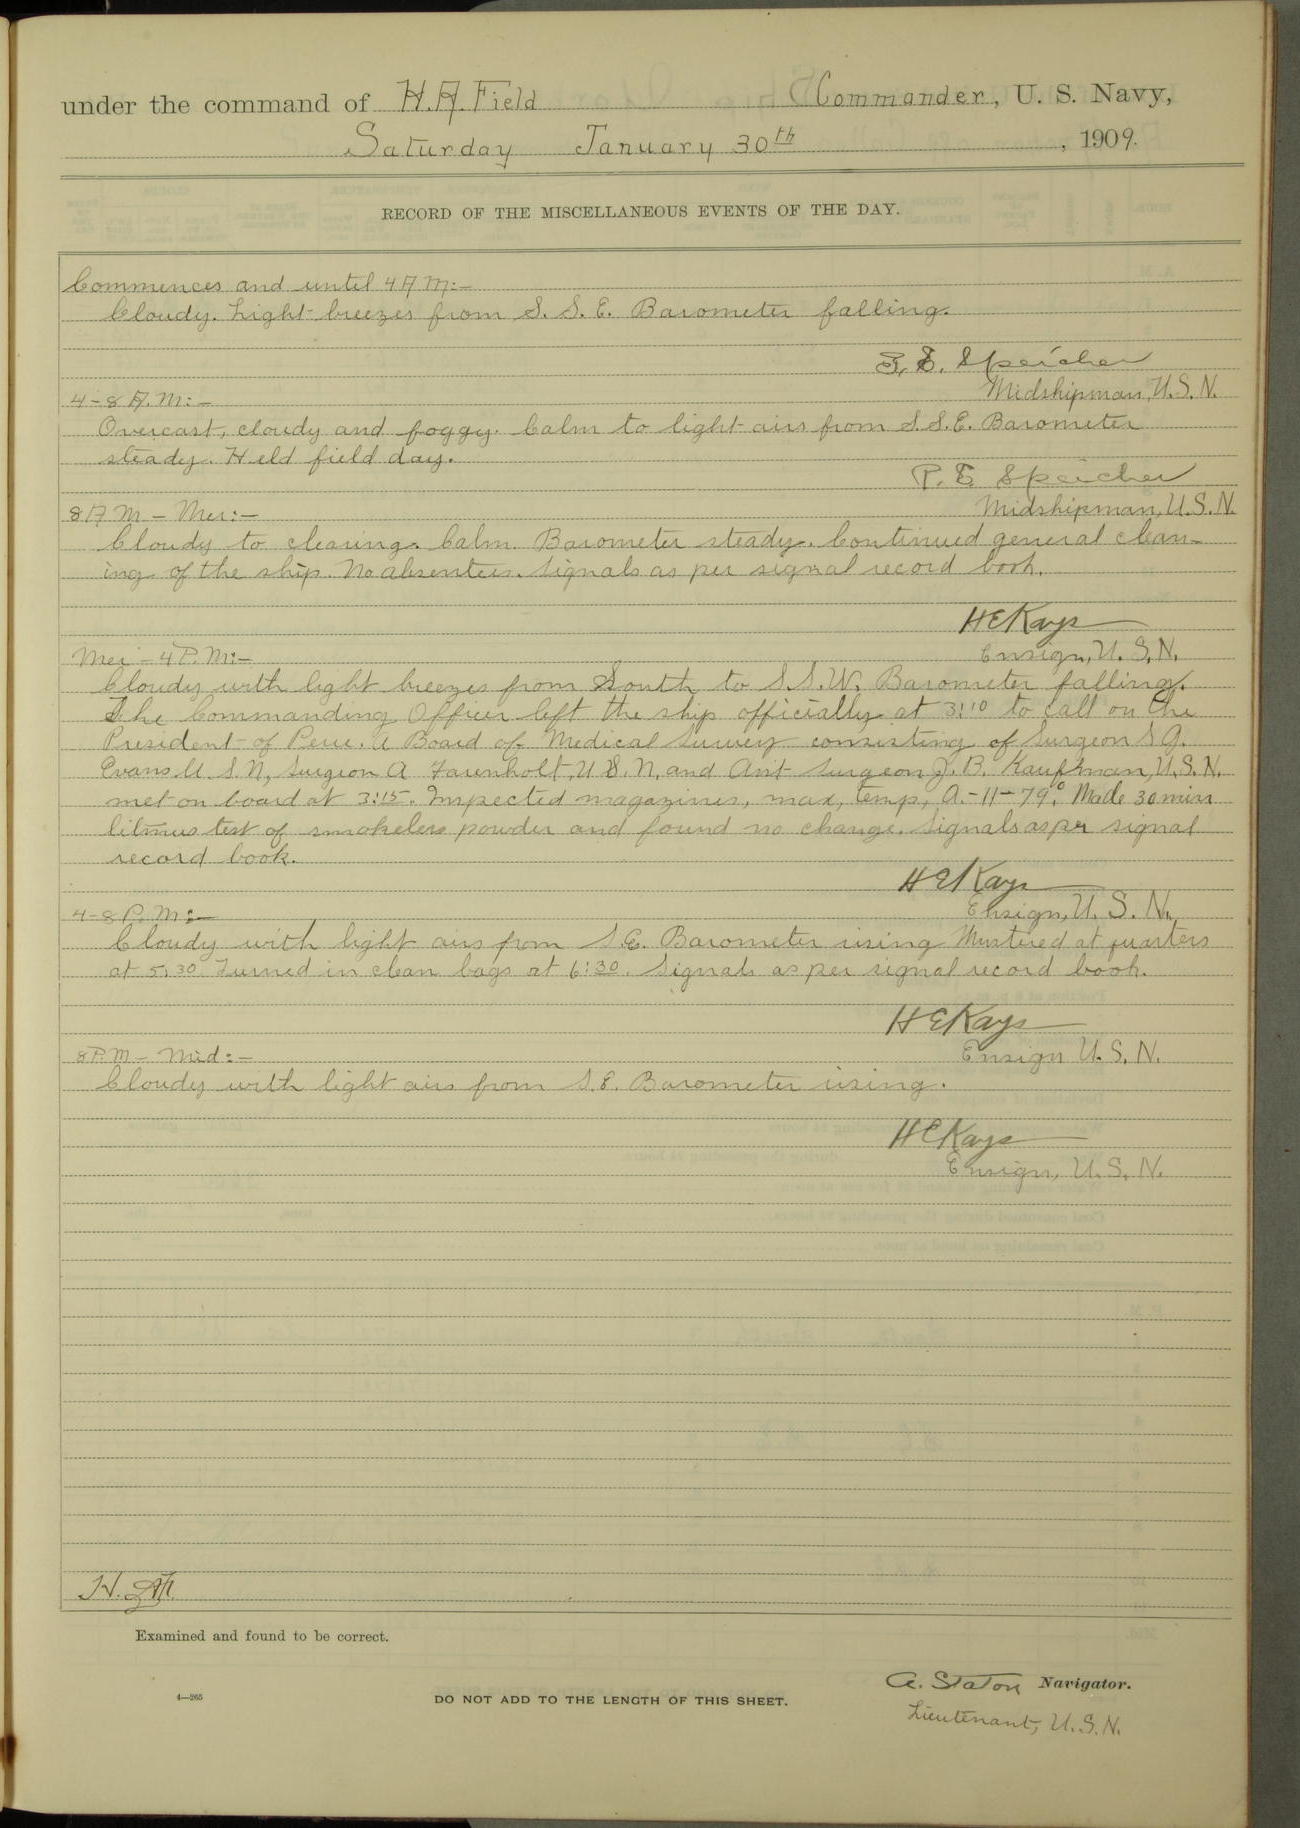 under the command of H. A. Field Commander, U. S. Navy,
Saturday January 30th, 1909.
RECORD OF THE MISCELLANEOUS EVENTS OF THE DAY.
Commences and until 4 A M:-
Cloudy. Light breezes from S. S. E. Barometer falling.
E. Speicher
4-8 A. M:- Midshipman, U. S. N.
Overcast, cloudy and foggy. Calm to light airs from S. S. E. Barometer
steady. Held field day.
P. E Speicher
8 A M - Mer:- Midshipman, U. S. N.
Cloudy to clearing. Calm. Barometer steady. Continued general clean-
ing of the ship. No absentees. Signals as per signal record book.
H E Kays
Mer - 4 P. M:- Ensign, U. S. N.
Cloudy with light breezes from South to S S. W. Barometer falling.
The Commanding Officer left the ship officially at 3:10 to call on the
President of Peru. A Board of Medical Survey consisting of Surgeon S G.
Evans U. S. N, Surgeon A Farenholt, U S. N, and As't Surgeon J. B. Kaufman, U. S. N.
met on board at 3:15. Inspected magazines, max, temp, A.-11-79°. Made 30 min
litmus test of smokeless powder and found no change. Signals as per signal
record book.
H E Kays
4-8 P. M:- Ensign, U. S. N.
Cloudy with light airs from S. E. Barometer rising Mustered at quarters
at 5:30. Turned in clean bags at 6:30. Signals as per signal record book.
H E Kays
8 P. M - Mid:- Ensign U. S. N.
Cloudy with light airs from S. E. Barometer rising.
H E Kays
Ensign, U. S. N.
H.
Examined and found to be correct.
A. Staton Navigator.
4—265 DO NOT ADD TO THE LENGTH OF THIS SHEET.
Lieutenant, U. S. N.